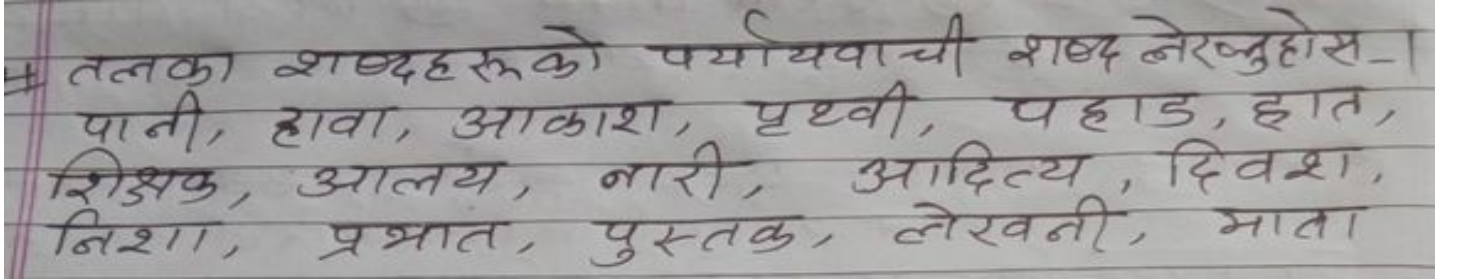 # तलका शब्दहरूको पर्यायवाची शब्द लेख्नुहोस -।
पानी, हावा, आकाश, पृथ्वी, पहाड, हात,
शिक्षक, आलय, नारी, आदित्य, दिवश,
निशा, प्रभात, पुस्तक, लेखनी, माता